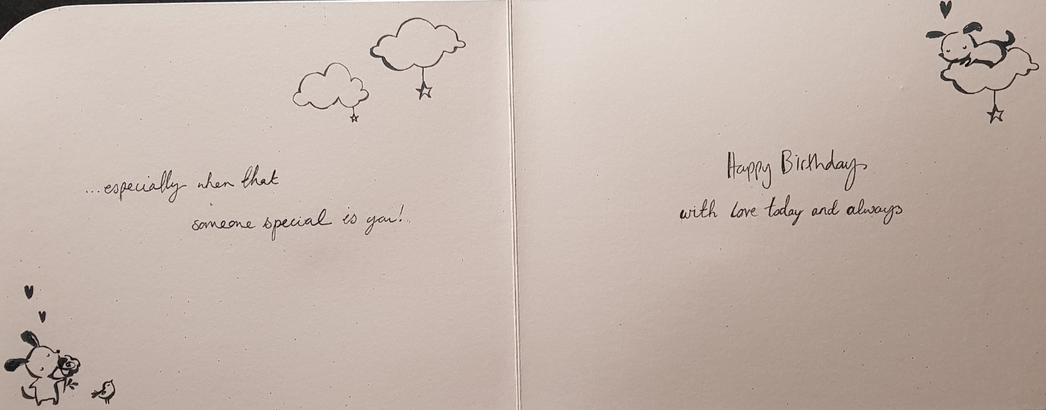 ...especially when that
someone special is you!
Happy Birthday
with love today and always